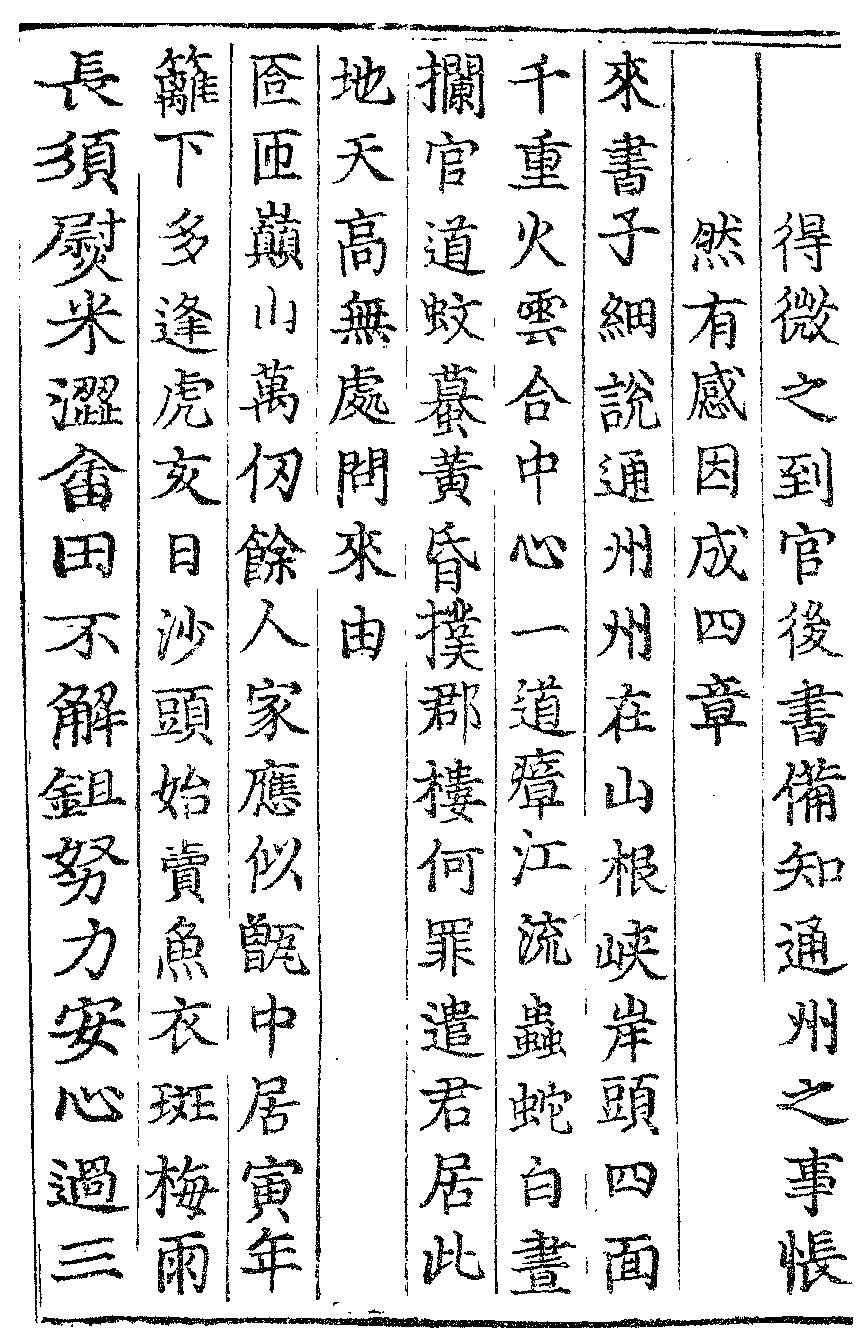 得微之到官後書備知通州之事悵
然有感因成四章
來書子細說通州州在山根峽岸頭四面
千重火雲合中心一道瘴江流蟲蛇白晝
攔官道蚊蟇黃昏撲郡樓何罪遣君居此
地天高無處問來由
匼匝巔山萬仞餘人家應似甑中居寅年
籬下多逢虎亥日沙頭始賣魚衣斑梅雨
長須熨米澀畬田不解鉏努力安心過三